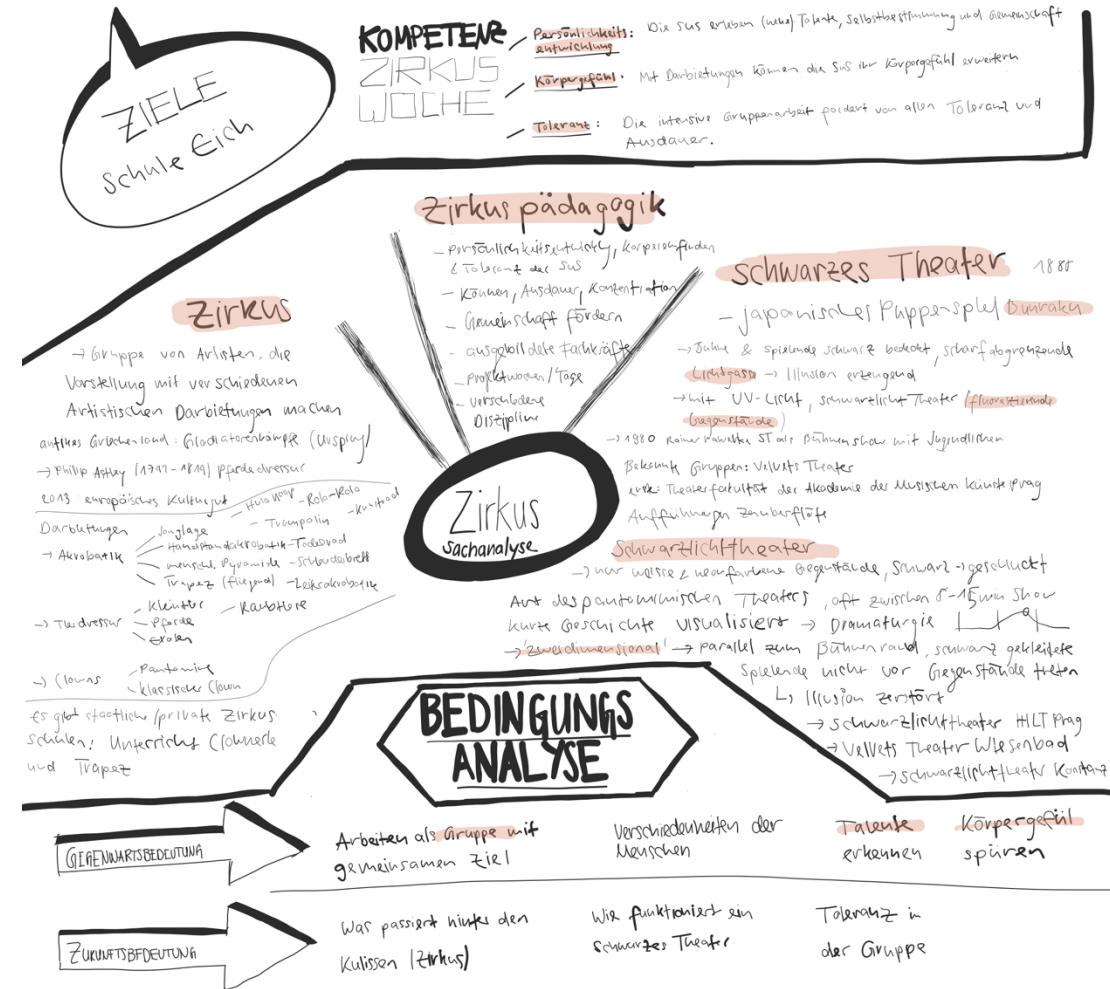 ZIELE
Schule Eich
KOMPETENZ
ZIRKUS
WOCHE
Persönlichkeits
entwicklung: Die SuS erleben (neue) Talente, Selbstbestimmung und Gemeinschaft
Körpergefühl: Mit Darbietungen können die SuS ihr Körpergefühl erweitern
Toleranz: Die intensive Gruppenarbeit fordert von allen Toleranz und
Ausdauer.
Zirkuspädagogik
- Persönlichkeitsentwickly, Körperempfinden
& Toleranz der SuS
- Können, Ausdauer, Konzentration
- Gemeinschaft fördern
- ausgebildete Fachkräfte
- Projektwochen/Tage
- verschiedene
Disziplinen
Zirkus
→ Gruppe von Artisten, die
Vorstellung mit verschiedenen
Artistischen Darbietungen machen
antikes Griechenland: Gladiatorenkämpfe (Ursprung)
→ Philip Astley Pferdedressur
2013 europäisches Kulturgut
Darbietungen
→ Akrobatik
Jonglage
- Hula Hoop - Rola-Rola
- Trampolin - Kunstrad
Handstandakrobatik - Todesrad
menschl. Pyramide - Schleuderbrett
Trapez (fliegend) - Leiterakrobatik
→ Tierdressur
- Kleintier - Raubtiere
- Pferde
- Exoten
→ Clowns
- Pantomime
- Klassischer Clown
Es gibt staatliche/private Zirkus
schulen: Unterricht Clownerie
und Trapez
Zirkus
Sachanalyse
Schwarzes Theater
- japanisches Puppenspiel Bunraku
→ Bühne & spielende schwarz bedeckt, scharf abgrenzende
Lichtgasse → Illusion erzeugend
→ mit UV-Licht, schwarzlicht Theater (fluoreszierende
Gegenstände)
→ 1980 Rainer Pawelke ST als Bühnenshow mit Jugendlichen
Bekannte Gruppen: Velvets Theater
Theaterfakultät der Akademie der Musischen Künste Prag
Aufführungen Zauberflöte
Schwarzlichttheater
→ nur weisse & neonfarbene Gegenstände, Schwarz → geschluckt
Art des pantomimischen Theaters, oft zwischen 8-15min Show
kurze Geschichte visualisiert → Dramaturgie
→ 'zweidimensional' → parallel zum Bühnenrand, schwarz gekleidete
Spielende nicht vor Gegenstände treten
↳ Illusion zerstört
→ Schwarzlichttheater HILT Prag
→ Velvets Theater Wiesenbad
→ Schwarzlichttheater Konstanz
BEDINGUNGS
ANALYSE
GEGENWARTSBEDEUTUNG
Arbeiten als Gruppe mit
gemeinsamen Ziel
Verschiedenheiten der
Menschen
Talente
erkennen
Körpergefühl
spüren
ZUKUNFTSBEDEUTUNG
Was passiert hinter den
Kulissen (Zirkus)
Wie funktioniert ein
Schwarzes Theater
Toleranz in
der Gruppe